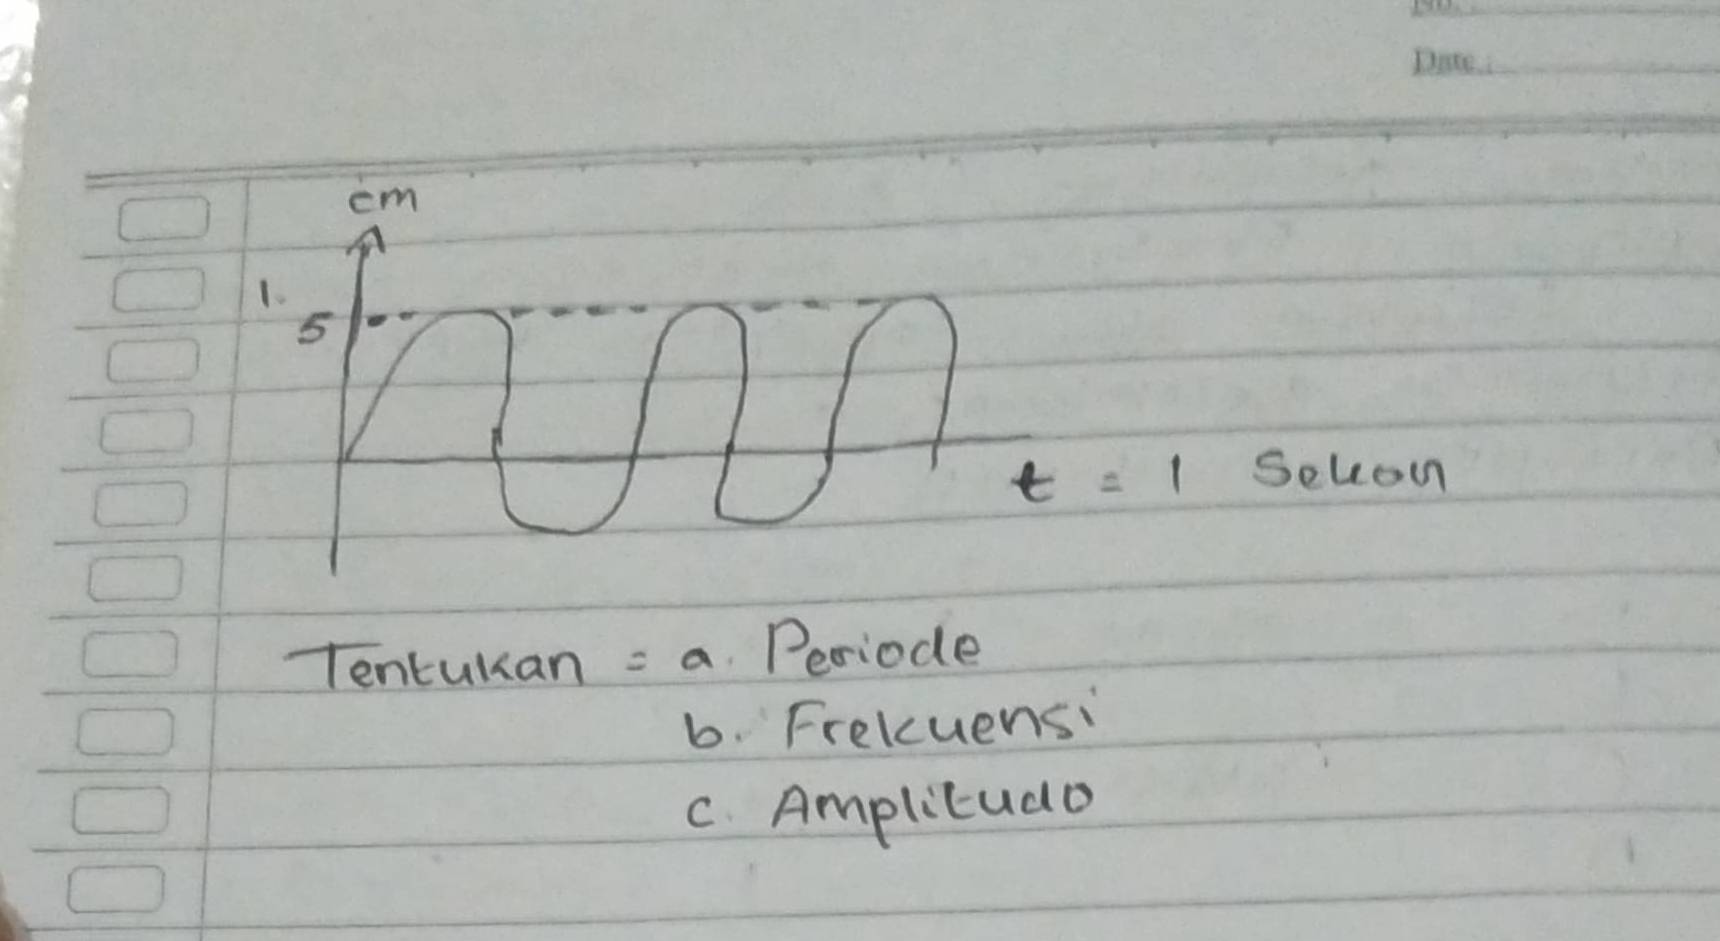 No.
Date :
cm
1.
5
t = 1 Sekon
Tentukan = a. Periode
b. Frekuensi
c. Amplitudo